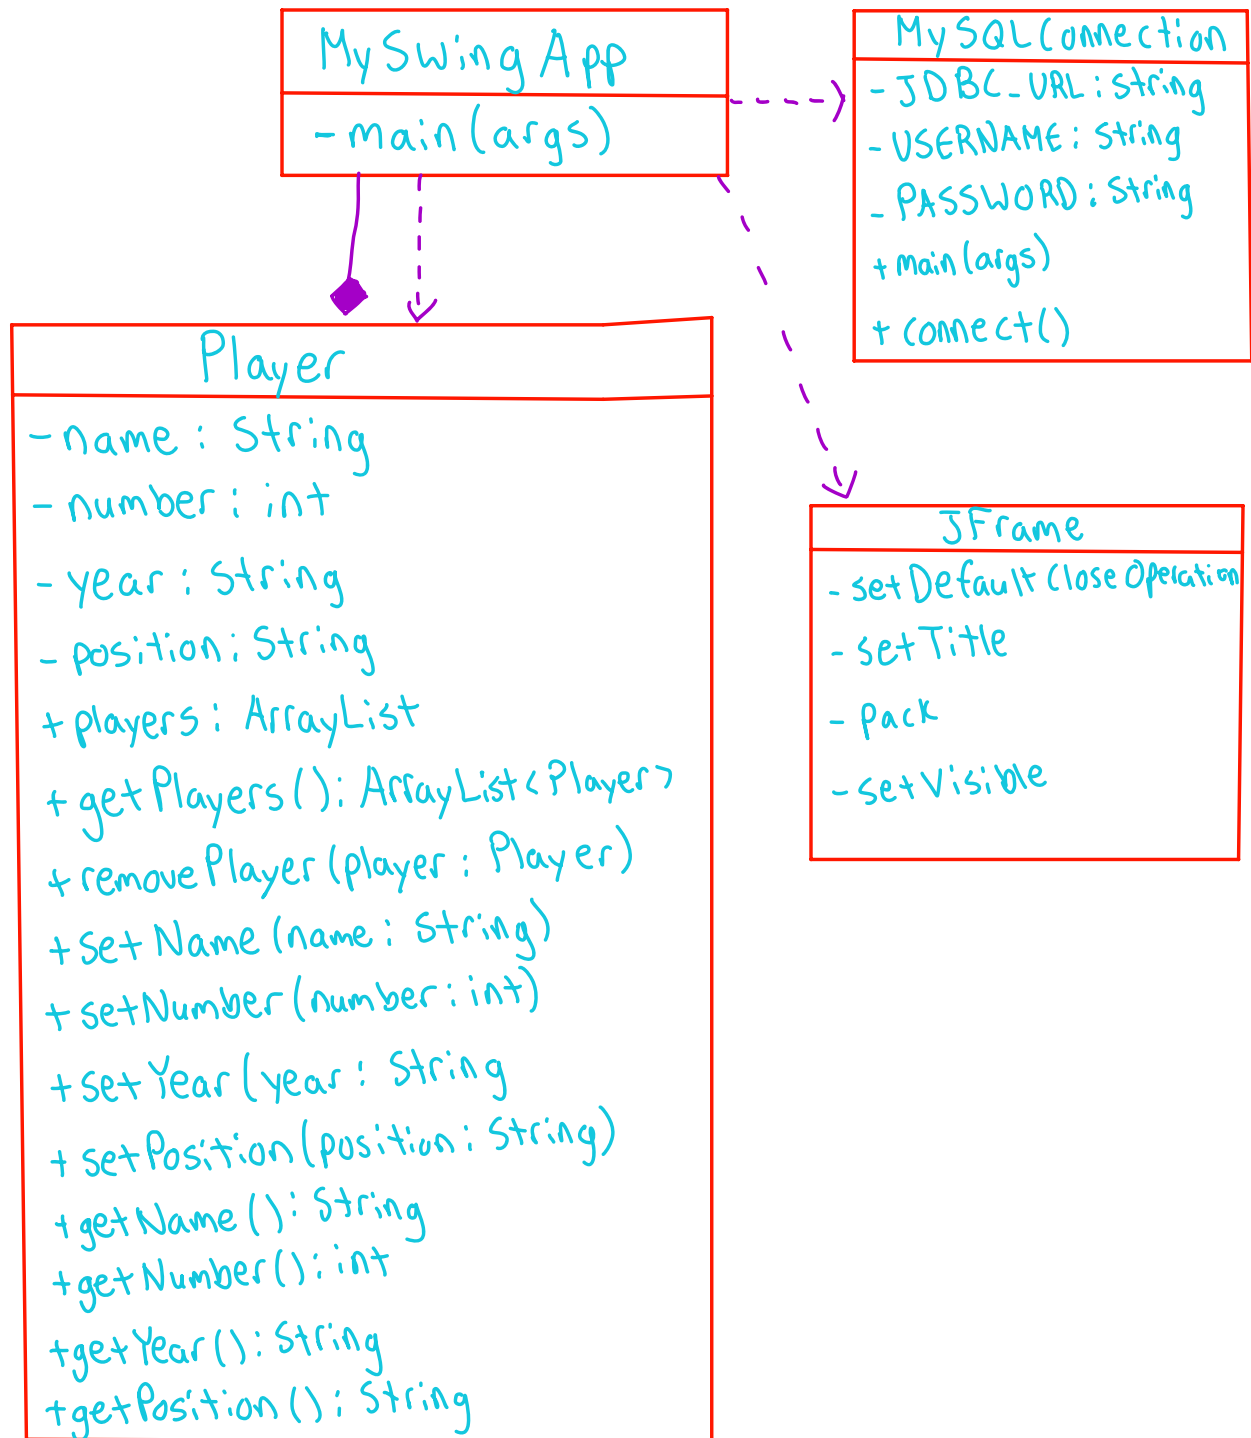 MySwingApp
- main(args)
MySQLConnection
- JDBC_URL: String
- USERNAME: String
- PASSWORD: String
+ main(args)
+ connect()
Player
- name: String
- number: int
- year: String
- position: String
+ players: ArrayList
+ getPlayers(): ArrayList<Player>
+ removePlayer(player: Player)
+ setName(name: String)
+ setNumber(number: int)
+ setYear(year: String
+ setPosition(position: String)
+ getName(): String
+ getNumber(): int
+ getYear(): String
+ getPosition(): String
JFrame
- setDefaultCloseOperation
- setTitle
- pack
- setVisible